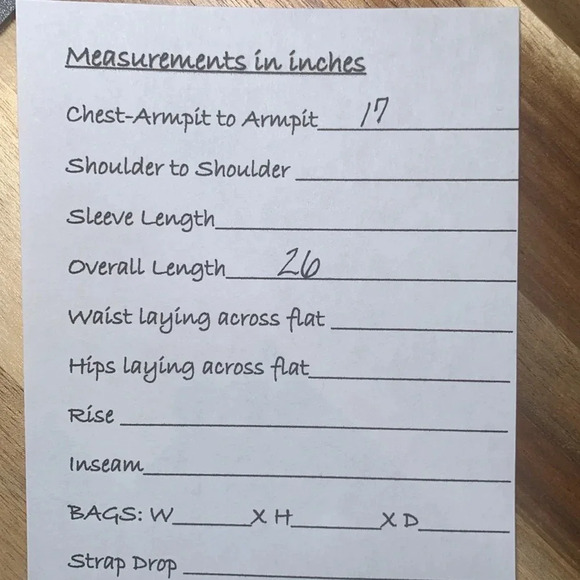 Measurements in inches
Chest-Armpit to Armpit 17
Shoulder to Shoulder
Sleeve Length
Overall Length 26
Waist laying across flat
Hips laying across flat
Rise
Inseam
BAGS: W______X H______X D______
Strap Drop